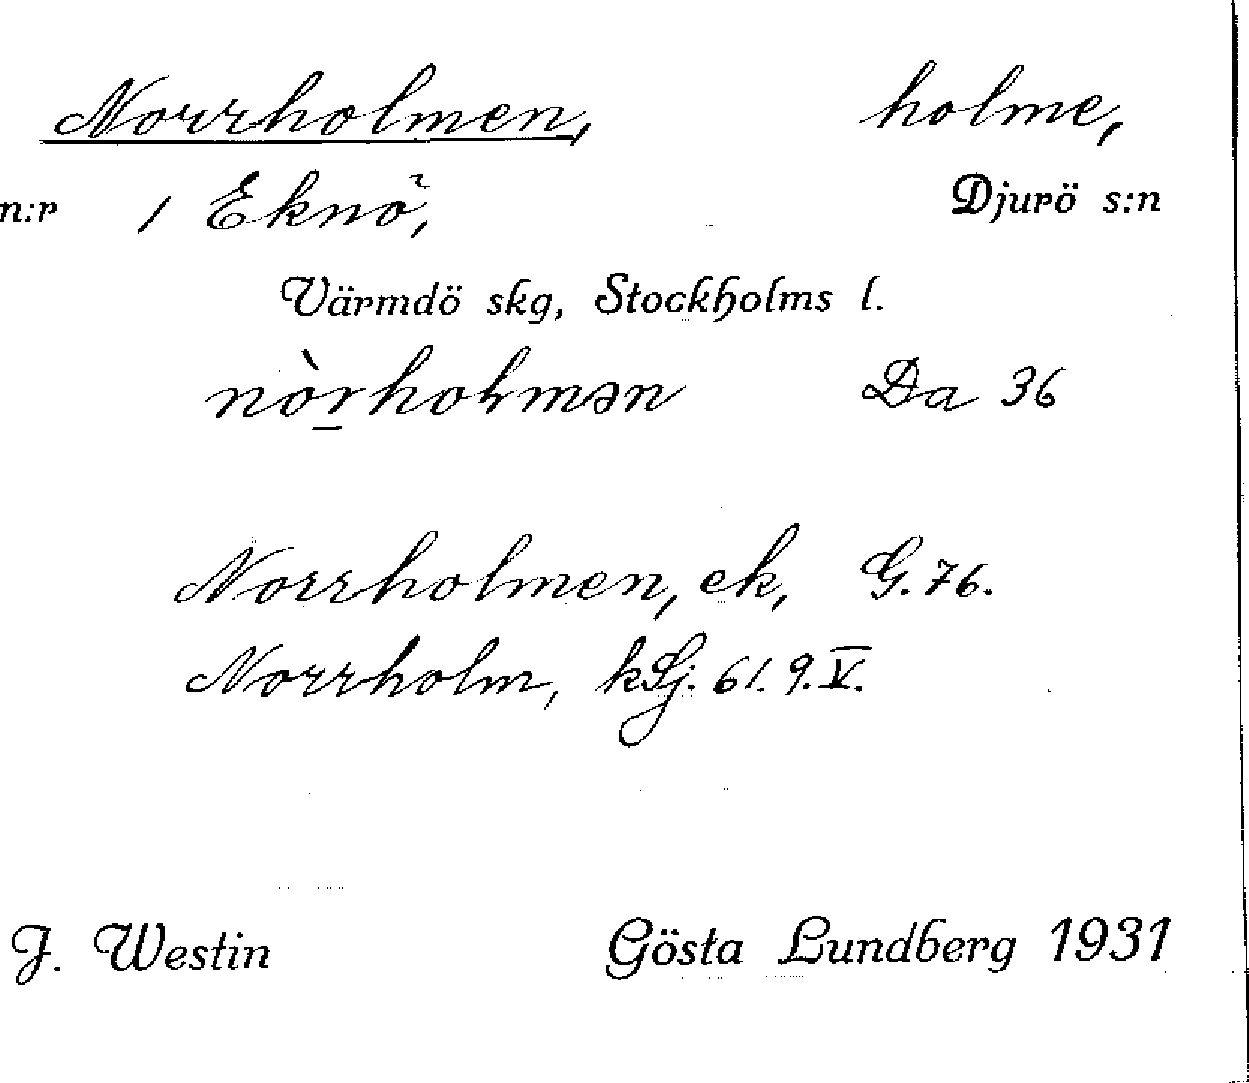 Norrholmen, holme,
n:r 1 Eknö, Djurö s:n
Värmdö skg, Stockholms l.
nòr̲holmən Da 36
Norrholmen, ek, G. 76.
Norrholm, kSj. 61. 9. V.
J. Westin Gösta Lundberg 1931